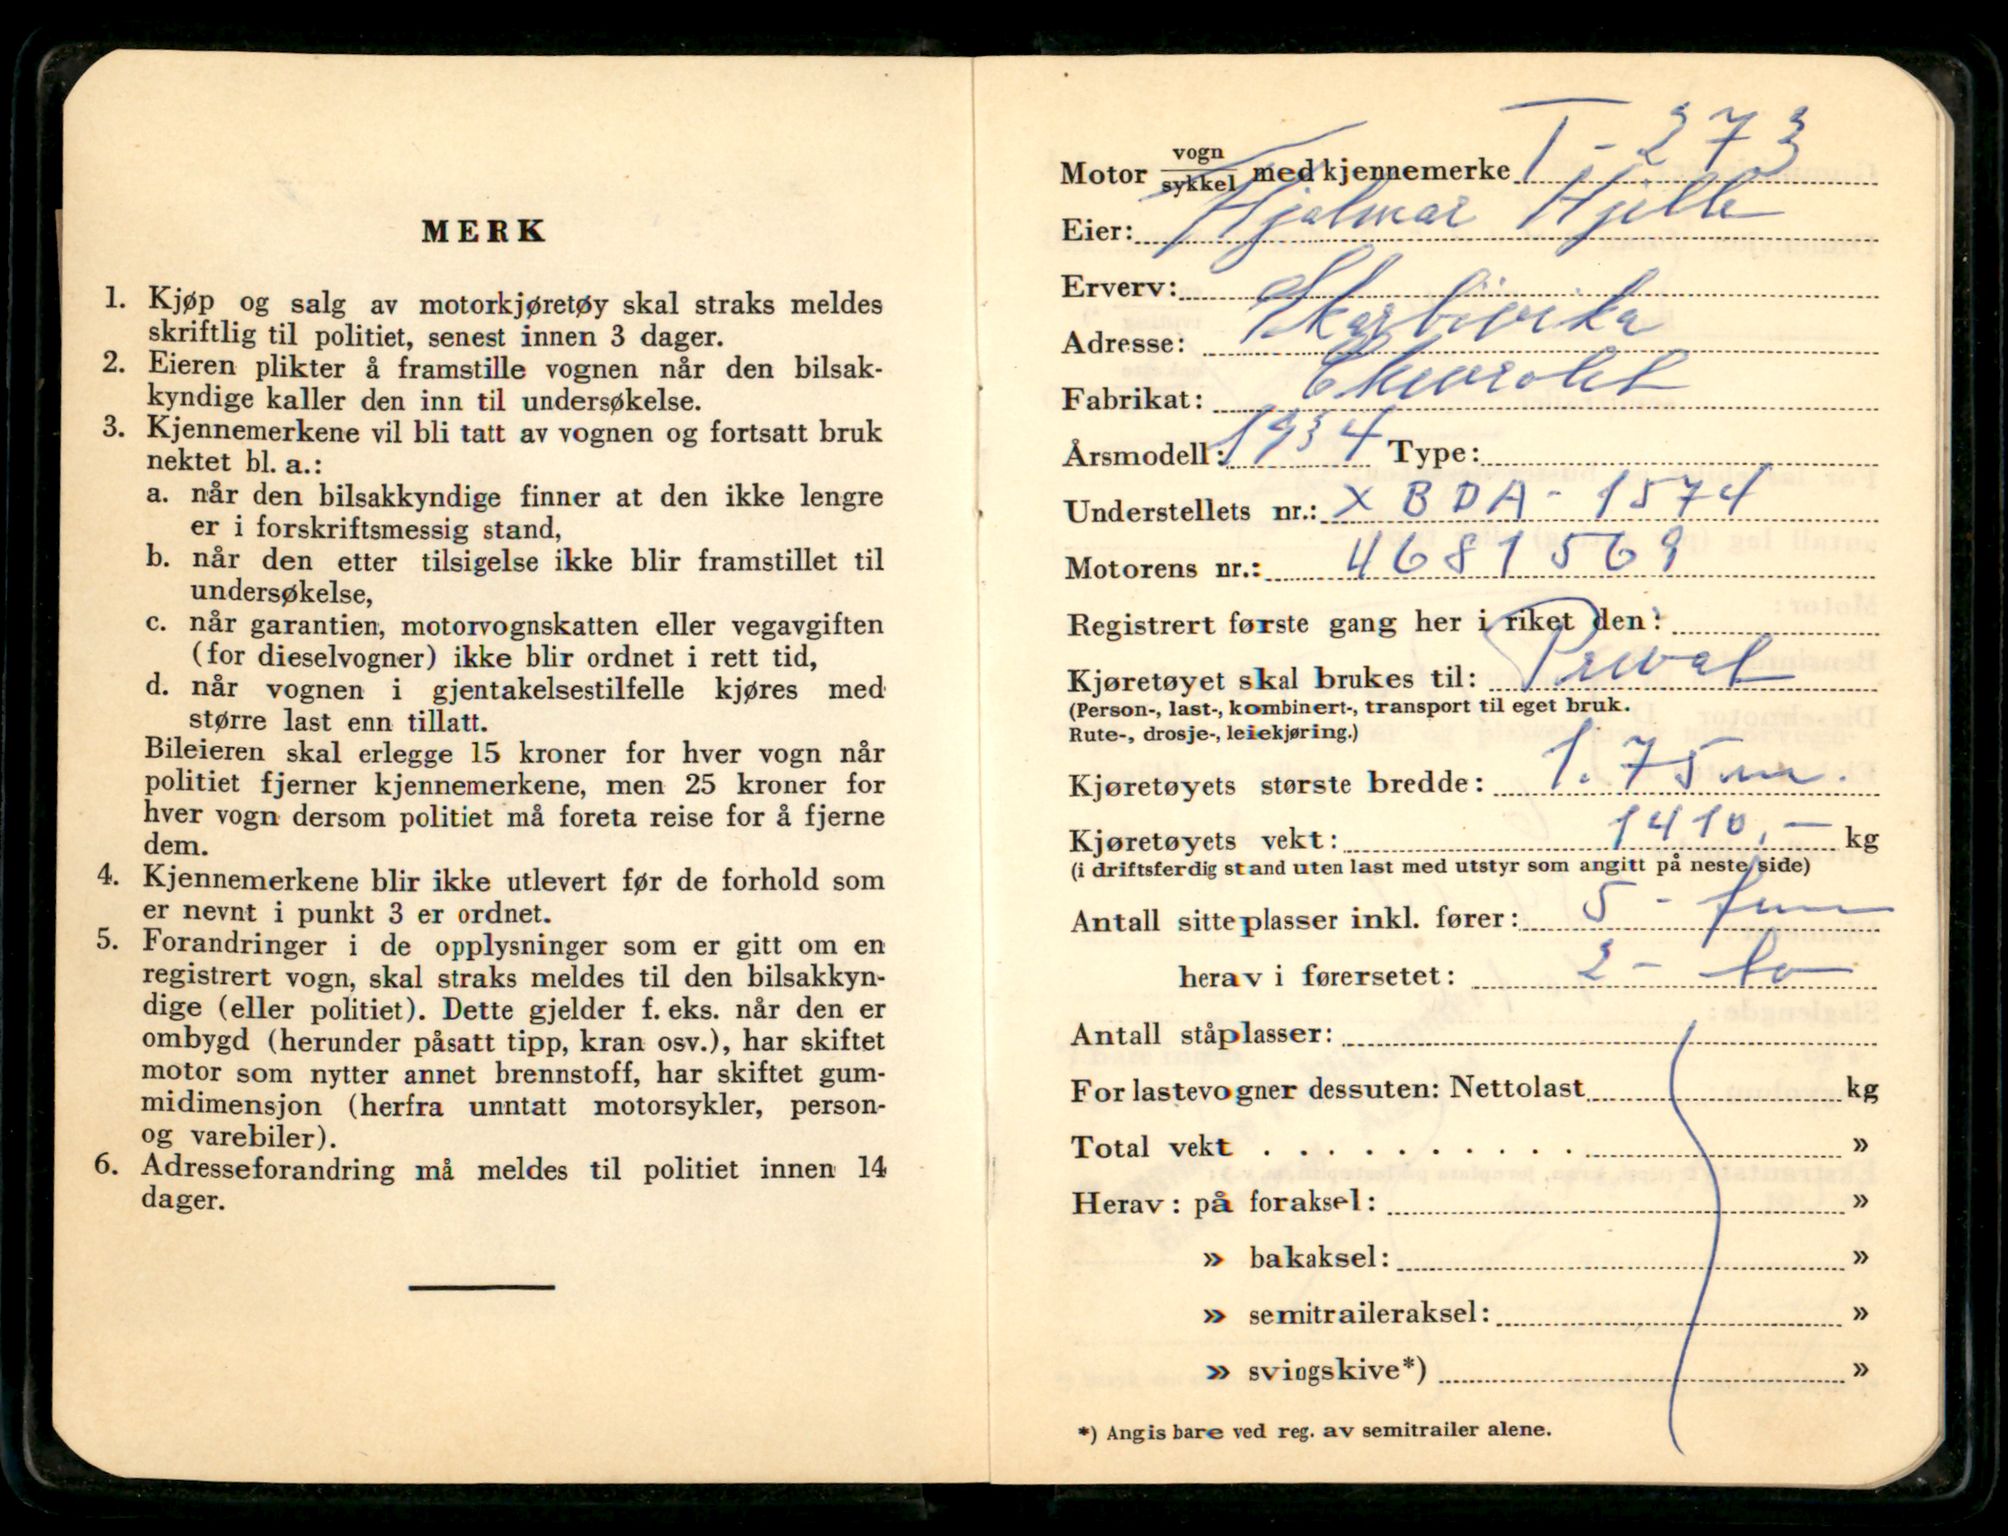 MERK
1. Kjøp og salg av motorkjøretøy skal straks meldes
skriftlig til politiet, senest innen 3 dager.
2. Eieren plikter å framstille vognen når den bilsak-
kyndige kaller den inn til undersøkelse.
3. Kjennemerkene vil bli tatt av vognen og fortsatt bruk
nektet bl. a.:
a. når den bilsakkyndige finner at den ikke lengre
er i forskriftsmessig stand,
b. når den etter tilsigelse ikke blir framstillet til
undersøkelse,
c. når garantien, motorvognskatten eller vegavgiften
(for dieselvogner) ikke blir ordnet i rett tid,
d. når vognen i gjentakelsestilfelle kjøres med
større last enn tillatt.
Bileieren skal erlegge 15 kroner for hver vogn når
politiet fjerner kjennemerkene, men 25 kroner for
hver vogn dersom politiet må foreta reise for å fjerne
dem.
4. Kjennemerkene blir ikke utlevert før de forhold som
er nevnt i punkt 3 er ordnet.
5. Forandringer i de opplysninger som er gitt om en
registrert vogn, skal straks meldes til den bilsakkyn-
dige (eller politiet). Dette gjelder f. eks. når den er
ombygd (herunder påsatt tipp, kran osv.), har skiftet
motor som nytter annet brennstoff, har skiftet gum-
midimensjon (herfra unntatt motorsykler, person-
og varebiler).
6. Adresseforandring må meldes til politiet innen 14
dager.
Motor vogn/sykkel med kjennemerke T-273
Eier: Hjalmar Hjelle
Erverv:
Adresse: Skarbövika
Fabrikat: Chevrolet
Årsmodell: 1934 Type:
Understellets nr.: XBDA-1574
Motorens nr.: 4681569
Registrert første gang her i riket den:
Kjøretøyet skal brukes til: Privat
(Person-, last-, kombinert-, transport til eget bruk.
Rute-, drosje-, leiekjøring.)
Kjøretøyets største bredde: 1.75 m.
Kjøretøyets vekt: 1410,- kg
(i driftsferdig stand uten last med utstyr som angitt på neste side)
Antall sitteplasser inkl. fører: 5 - fem
herav i førersetet: 2 - to
Antall ståplasser:
For lastevogner dessuten: Nettolast kg
Total vekt . . . . . . . . . . »
Herav: på foraksel: »
» bakaksel: »
» semitraileraksel: »
» svingskive*) »
*) Angis bare ved reg. av semitrailer alene.